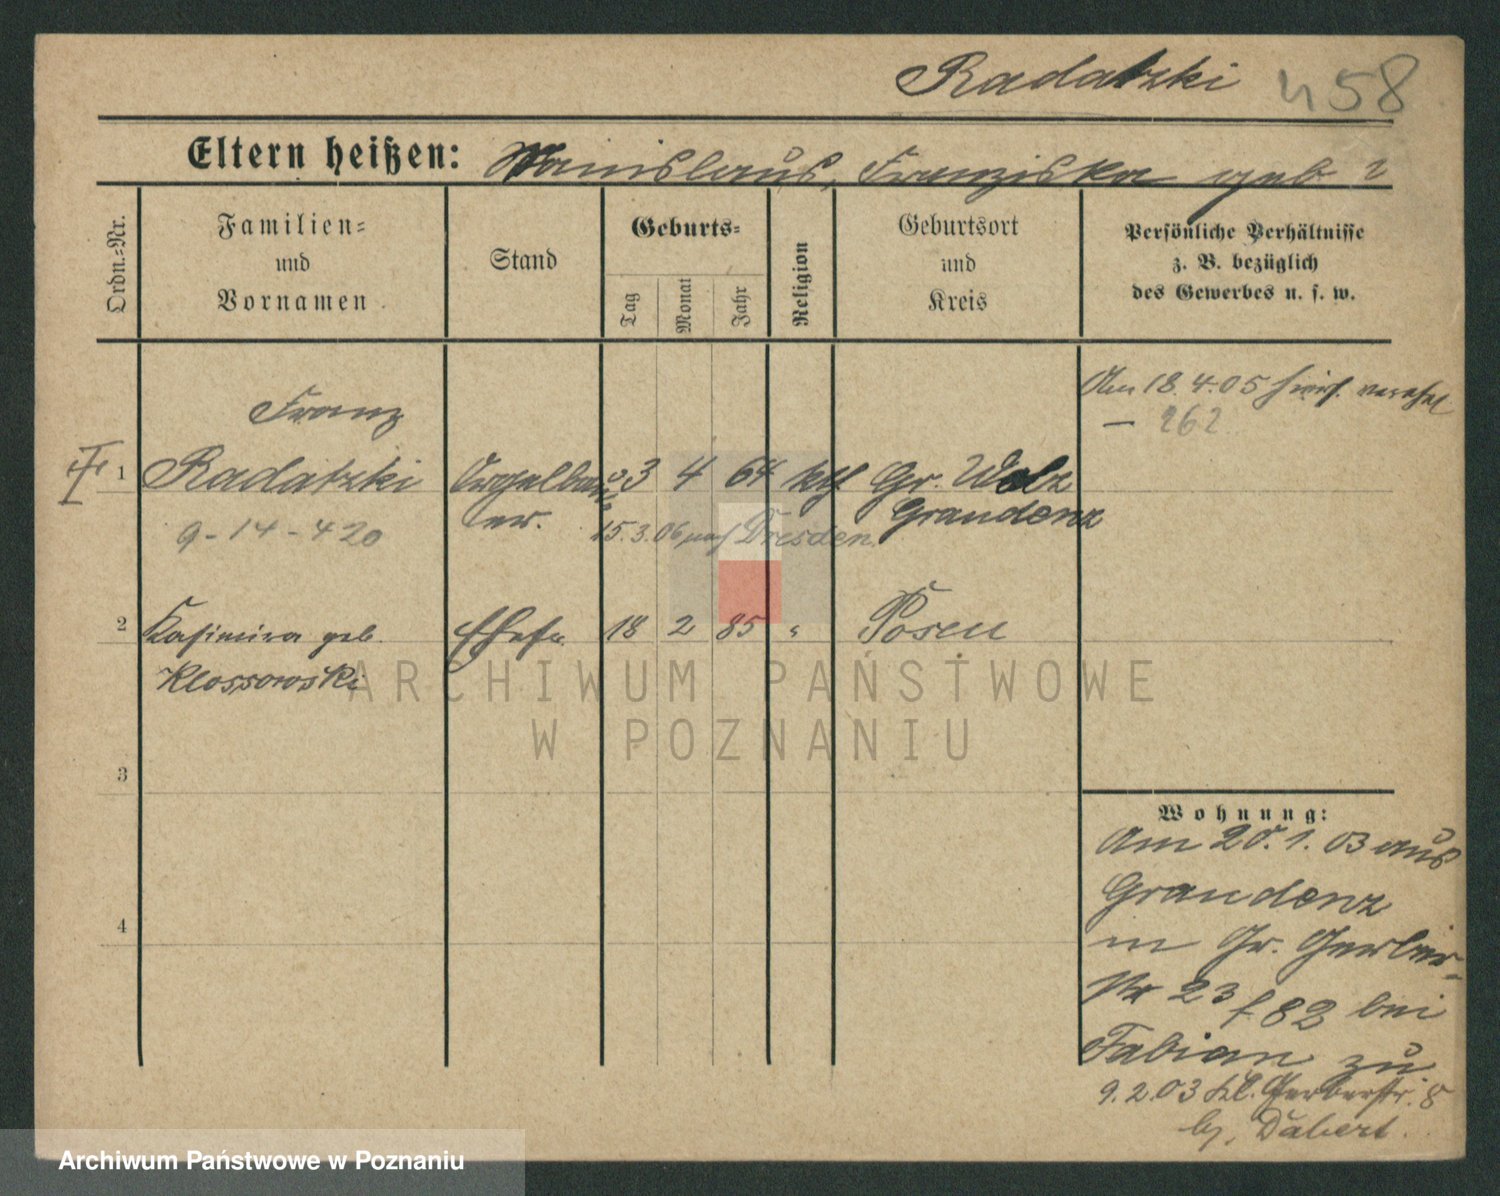 Radatzki 458
Eltern heißen: Stanislaus, Franziska geb ?
Ordn.=Nr.
Familien=
und
Vornamen
Stand
Geburts=
Tag
Monat
Jahr
Religion
Geburtsort
und
Kreis
Persönliche Verhältnisse
z. B. bezüglich
des Gewerbes u. s. w.
Am 18.4.05 hier verehel
— 262
Franz
1 Radatzki Orgelbau 3 4 64 kth Gr. Wolz
er. Graudenz
9-14-420 15.3.06 nach Dresden.
2 Kasimira geb. Ehefr. 18 2 85 " Posen
Klossowski
ARCHIWUM PAŃSTWOWE
W POZNANIU
3
Wohnung:
Am 20.1.03 aus
Graudenz
4
in Gr. Gerber-
Str 23 f 82 bei
Fabian zu
9.2.03 Kl. Gerberstr. 8
b/. Dabert.
Archiwum Państwowe w Poznaniu